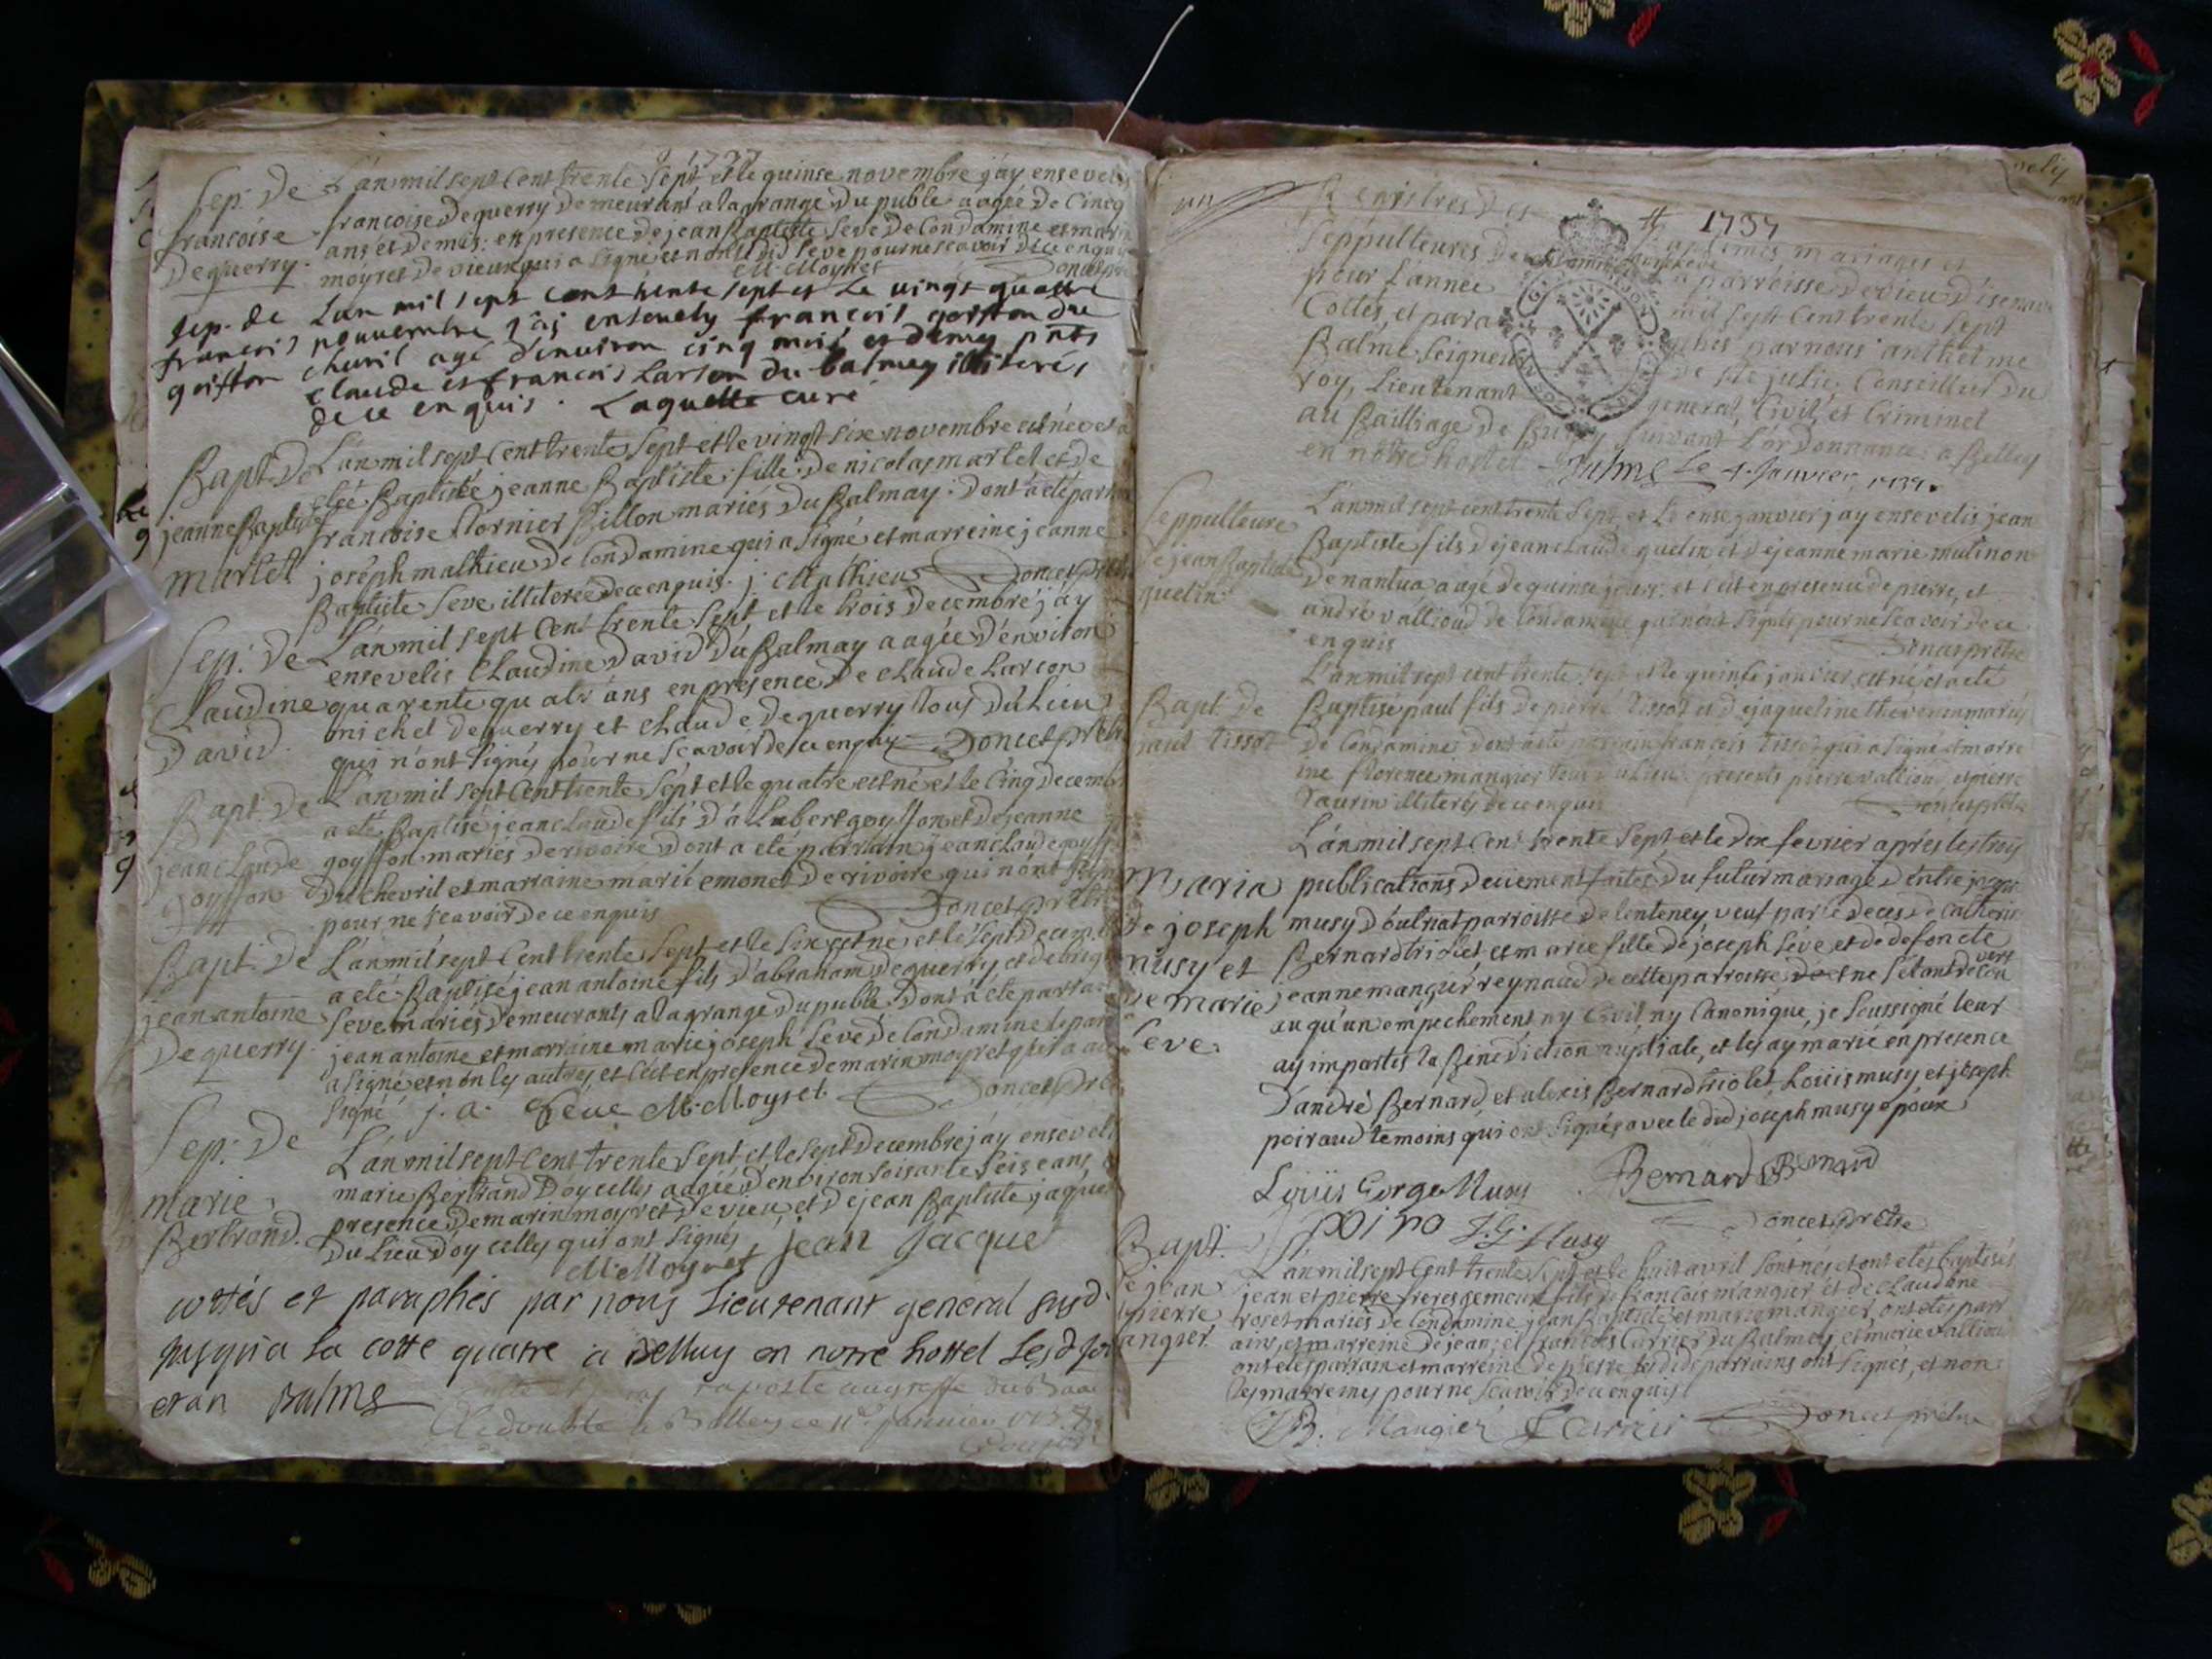 1737
Sep. de L'an mil sept cent trente sept et le quinse novembre j'ay ensevely
francoise francoise dequerry demeurant a la grange du puble aagée de cincq
dequerry. ans et demis: en presence de jean Baptiste Seve de Condamine et marin
moyret de vieux qui a signé et non led Seve pour ne scavoir de ce enquis
M. Moyret Doncet
Sep. de L'an mil sept cent trente sept et le vingt quattre
francois nouvembre j'ai ensevely francois goiffon du
goiffon chvril agé d'environ cinq mois et demy pnts
claude et francois Larson du balmey illiterés
de ce enquis. Laquette curé
Bapt. de L'an mil sept cent trente sept et le vingt six novembre est née et a
etée Baptisée jeanne Baptiste fille de nicolas martel et de
jeanne Baptiste francoise Hornier Billon mariés du Balmay. dont a eté parrain
martel joseph mathieu de Condamine qui a signé et marreine jeanne
Baptiste Seve illiterée de ce enquis. j. Mathieu Doncet prêtre
Sep. de L'an mil sept cent trente sept et le trois decembre j'ay
ensevelis Claudine David du Balmay aagée d'environ
Claudine quarente quatr ans en presence de claude Larcon
David. michel dequerry et claude dequerry tous du lieu
qui n'ont signés pour ne scavoir de ce enquis Doncet prêtre
Bapt. de L'an mil sept cent trente sept et le quatre est né et le cinq decembre
a eté Baptisé jean claude fils d'alubert goyffon et de jeanne
jean claude goyffon mariés de rivoire dont a eté parrain jean claude goyff
goyffon du chevril et marraine marie emonet de rivoire qui n'ont sign
pour ne scavoir de ce enquis Doncet prêtre
Bapt. de L'an mil sept cent trente sept et le six est né et le sept decemb
a eté Baptisé jean antoine fils d'abraham dequerry et de
jean antoine Seve mariés demeurants a la grange du puble. dont a eté parrain
dequerry. jean antoine et marraine marie joseph Seve de Condamine le parr
a signé et non les autres, et c'est en presence de marin moyret qui a au
signé j. a. Seve M. Moyret Doncet prêtre
Sep. de L'an mil sept cent trente sept et le sept decembre j'ay ensevel
marie Bertrand d'oycelles aagée d'environ soisante seise ans
marie presence de marin moyret de vieu et de jean Baptiste jaque
Bertrand. du lieu d'oycelles qui ont signés
M. Moyret jean Jacquet
cottés et paraphés par nous Lieutenant general susd.
jusqu'a la cotte quatre a Belley en notre hottel lesd jo
et an Balme
1737
Registres des Baptemes mariages et
Seppulteures de parroisse de vieu d'isenave
pour L'année mil sept cent trente sept
Cottés, et para phés par nous anthelme
Balme Seigneur de Ste julie, Conseiller du
roy, Lieutenant general, Civil, et Criminel
au Bailliage de Bugey suivant L'ordonnance a Belley
en notre hostel Balme Le 4. janvier, 1737.
Seppulteure L'an mil sept cent trente sept et le onse janvier j'ay ensevelis jean
de jean Baptiste Baptiste fils de jean claude guelin et de jeanne marie mulinon
guelin de nantua aagé de quinse jours. et c'est en presence de pierre, et
andré vallioud de Condamine qui n'ont signés pour ne scavoir de ce
enquis Doncet prêtre
L'an mil sept cent trente sept et le quinse janvier, est né, et a eté
Bapt. de Baptisé paul fils de pierre Tissot et de jaqueline thevenin mariés
paul Tissot de Condamine dont a eté parrain francois Tissot qui a signé et marre
ine florence mangier tous du lieu. presents pierre vallioud, et pierre
Saurin illiterés de ce enquis Doncet prêtre
L'an mil sept cent trente sept et le dix fevrier aprés les trois
Maria publications deuement faites du futur mariage d'entre joseph
de joseph musy d'oulriat parroisse de lenteney veuf par le deces de Catherin
musy et Bernard triolet et marie fille de joseph Seve et de defoncte
de marie jeanne mangier reynaud de cette parroisse et ne s'etant decouvert
Seve. auqu'un empechement ny Civil ny Canonique, je soussigné leur
ay impartis la Benediction nuptiale, et les ay marié en presence
d'andré Bernard et alexis Bernard triolet, Loüis musy et joseph
poiraud temoins qui ont signés avec le did joseph musy epoux
Loüis Gorge Musy Bernard Bernard
poiro J. G. Musy Doncet prêtre
Bapt. L'an mil sept cent trente sept et le huit avril sont nés et ont etés baptisés
de jean jean et pierre freres gemeux fils de francois mangier et de claudine
pierre roset mariés de Condamine jean Baptiste et marie mangier, ont etés parr
angier. ains, et marreine de jean; et francois Carrier du Balmey et marie vallioud
ont etés parrain et marreine de pierre les dids parrains ont signés, et non
les marreines pour ne scavoir de ce enquis
J B. Mangier f Carrier Doncet prêtre